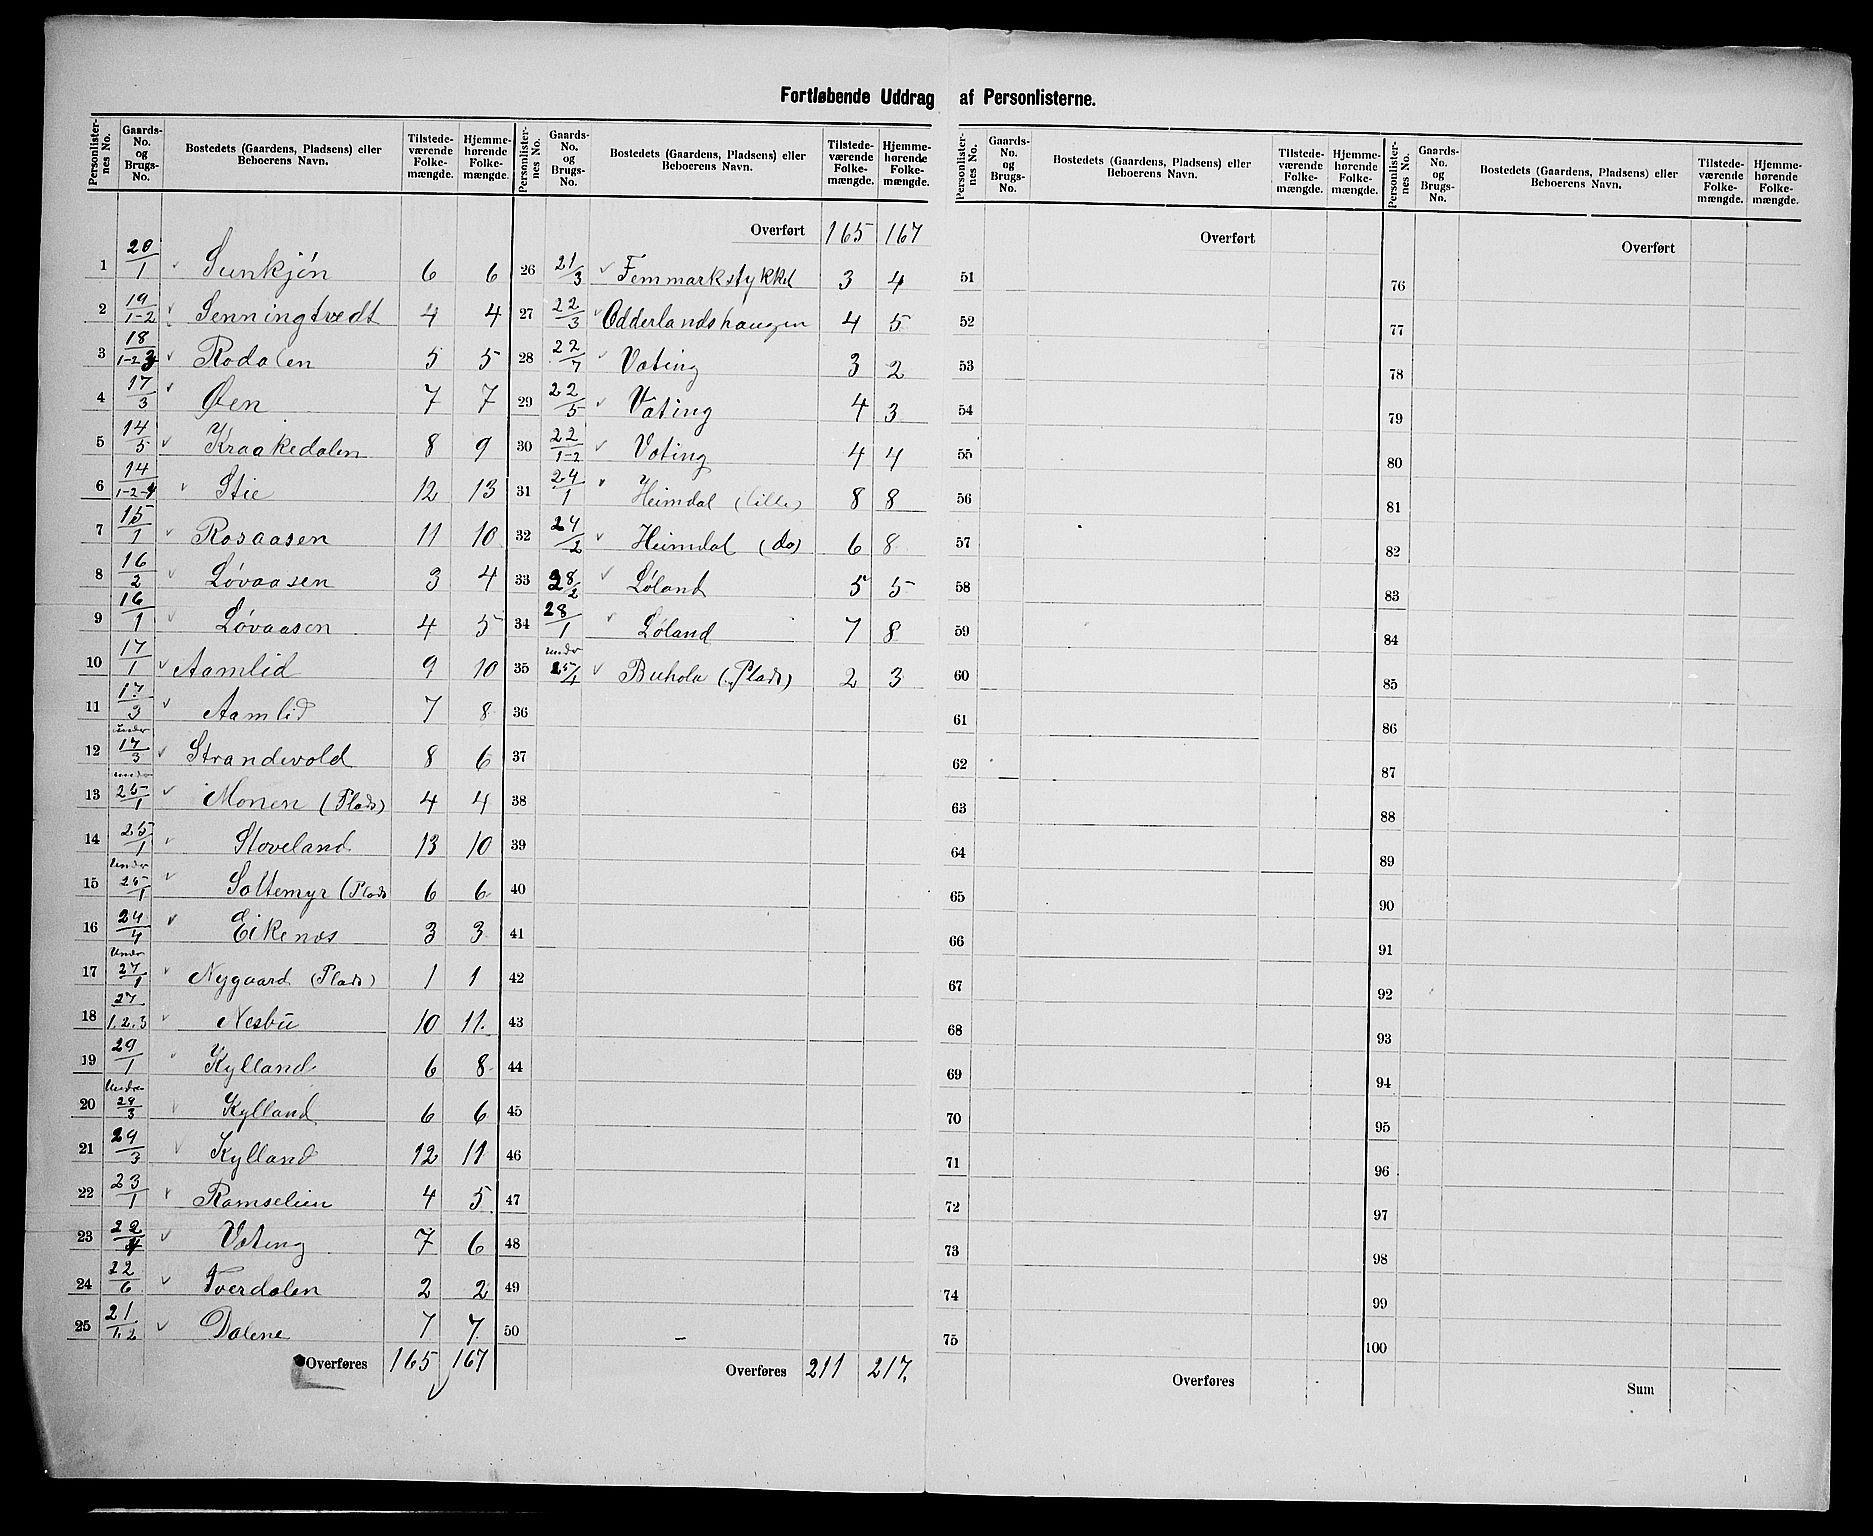 Fortløbende Uddrag af Personlisterne.
Personlister-nes No. | Gaards-No. og Brugs-No. | Bostedets (Gaardens, Pladsens) eller Beboerens Navn. | Tilstede-værende Folke-mængde. | Hjemme-hørende Folke-mængde.
1 | 20/1 | Sunkjøn | 6 | 6
2 | 19/1-2 | Senningtvedt | 4 | 4
3 | 18/1-2-3 | Rodalen | 5 | 5
4 | 17/3 | Øen | 7 | 7
5 | 14/5 | Kraakedalen | 8 | 9
6 | 14/1-2-4 | Stie | 12 | 13
7 | 15/1 | Rosaasen | 11 | 10
8 | 16/2 | Løvaasen | 3 | 4
9 | 16/1 | Løvaasen | 4 | 5
10 | 17/1 | Aamlid | 9 | 10
11 | 17/3 | Aamlid | 7 | 8
12 | under 17/3 | Strandevold | 8 | 6
13 | under 25/1 | Monen (Plads) | 4 | 4
14 | 25/1 | Stoveland | 13 | 10
15 | Under 25/1 | Soltemyr (Plads | 6 | 6
16 | 24/4 | Eikenæs | 3 | 3
17 | Under 27/1 | Nygaard (Plads) | 1 | 1
18 | 27/1.2.3 | Nesbü | 10 | 11.
19 | 29/1 | Kylland | 6 | 8
20 | Under 29/3 | Kylland | 6 | 6
21 | 29/3 | Kylland | 12 | 11
22 | 23/1 | Ramselien | 4 | 5
23 | 22/4 | Vating | 7 | 6
24 | 22/6 | Tverdalen | 2 | 2
25 | 21/1.2 | Dalene | 7 | 7
Overføres | 165 | 167
Personlister-nes No. | Gaards-No. og Brugs-No. | Bostedets (Gaardens, Pladsens) eller Beboerens Navn. | Tilstede-værende Folke-mængde. | Hjemme-hørende Folke-mængde.
Overført | 165 | 167
26 | 21/3 | Femmarkstykket | 3 | 4
27 | 22/3 | Odderlandshaugen | 4 | 5
28 | 22/7 | Vating | 3 | 2
29 | 22/5 | Vating | 4 | 3
30 | 22/1-2 | Vating | 4 | 4
31 | 24/1 | Heimdal (lille) | 8 | 8
32 | 24/2 | Heimdal (do) | 6 | 8
33 | 28/2 | Løland | 5 | 5
34 | 28/1 | Løland | 7 | 8
35 | under 25/4 | Buhola (Plads) | 2 | 3
36
37
38
39
40
41
42
43
44
45
46
47
48
49
50
Overføres | 211 | 217.
Personlister-nes No. | Gaards-No. og Brugs-No. | Bostedets (Gaardens, Pladsens) eller Beboerens Navn. | Tilstede-værende Folke-mængde. | Hjemme-hørende Folke-mængde.
Overført
51
52
53
54
55
56
57
58
59
60
61
62
63
64
65
66
67
68
69
70
71
72
73
74
75
Overføres
Personlister-nes No. | Gaards-No. og Brugs-No. | Bostedets (Gaardens, Pladsens) eller Beboerens Navn. | Tilstede-værende Folke-mængde. | Hjemme-hørende Folke-mængde.
Overført
76
77
78
79
80
81
82
83
84
85
86
87
88
89
90
91
92
93
94
95
96
97
98
99
100
Sum